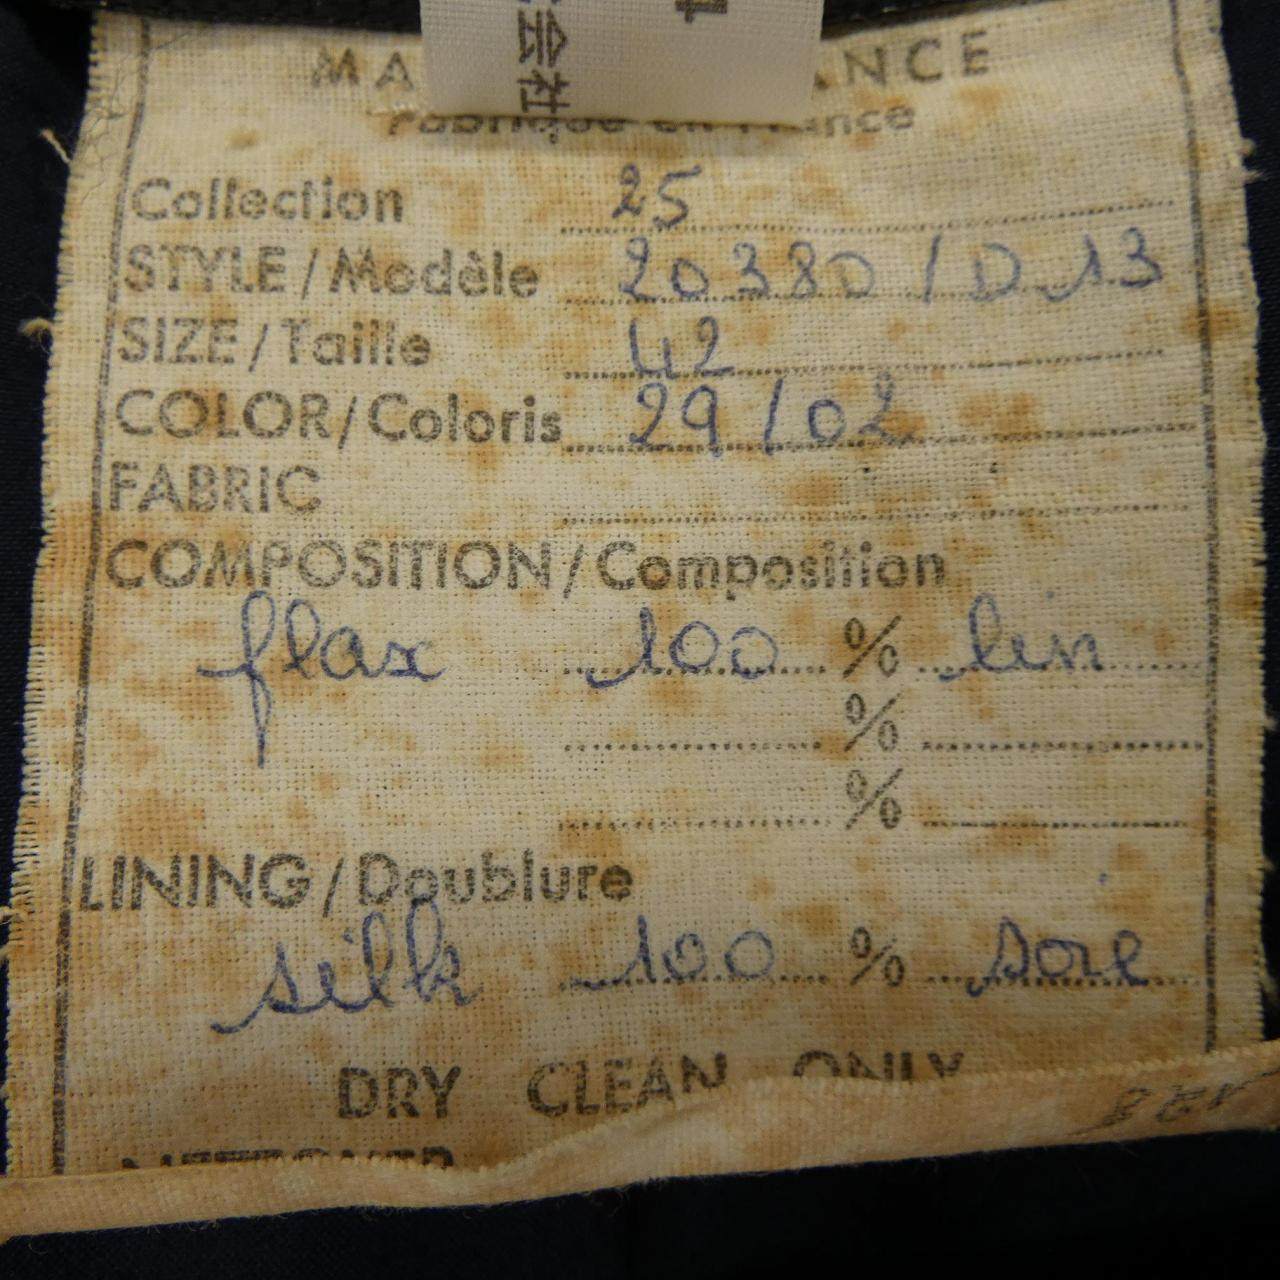 会社
MA ANCE
Fabriqué en France
Collection 25
STYLE/Modèle 20380/D.13
SIZE/Taille 42
COLOR/Coloris 29/02
FABRIC
COMPOSITION/Composition
flax 100 % lin
%
%
LINING/Doublure
silk 100 % soie
DRY CLEAN ONLY